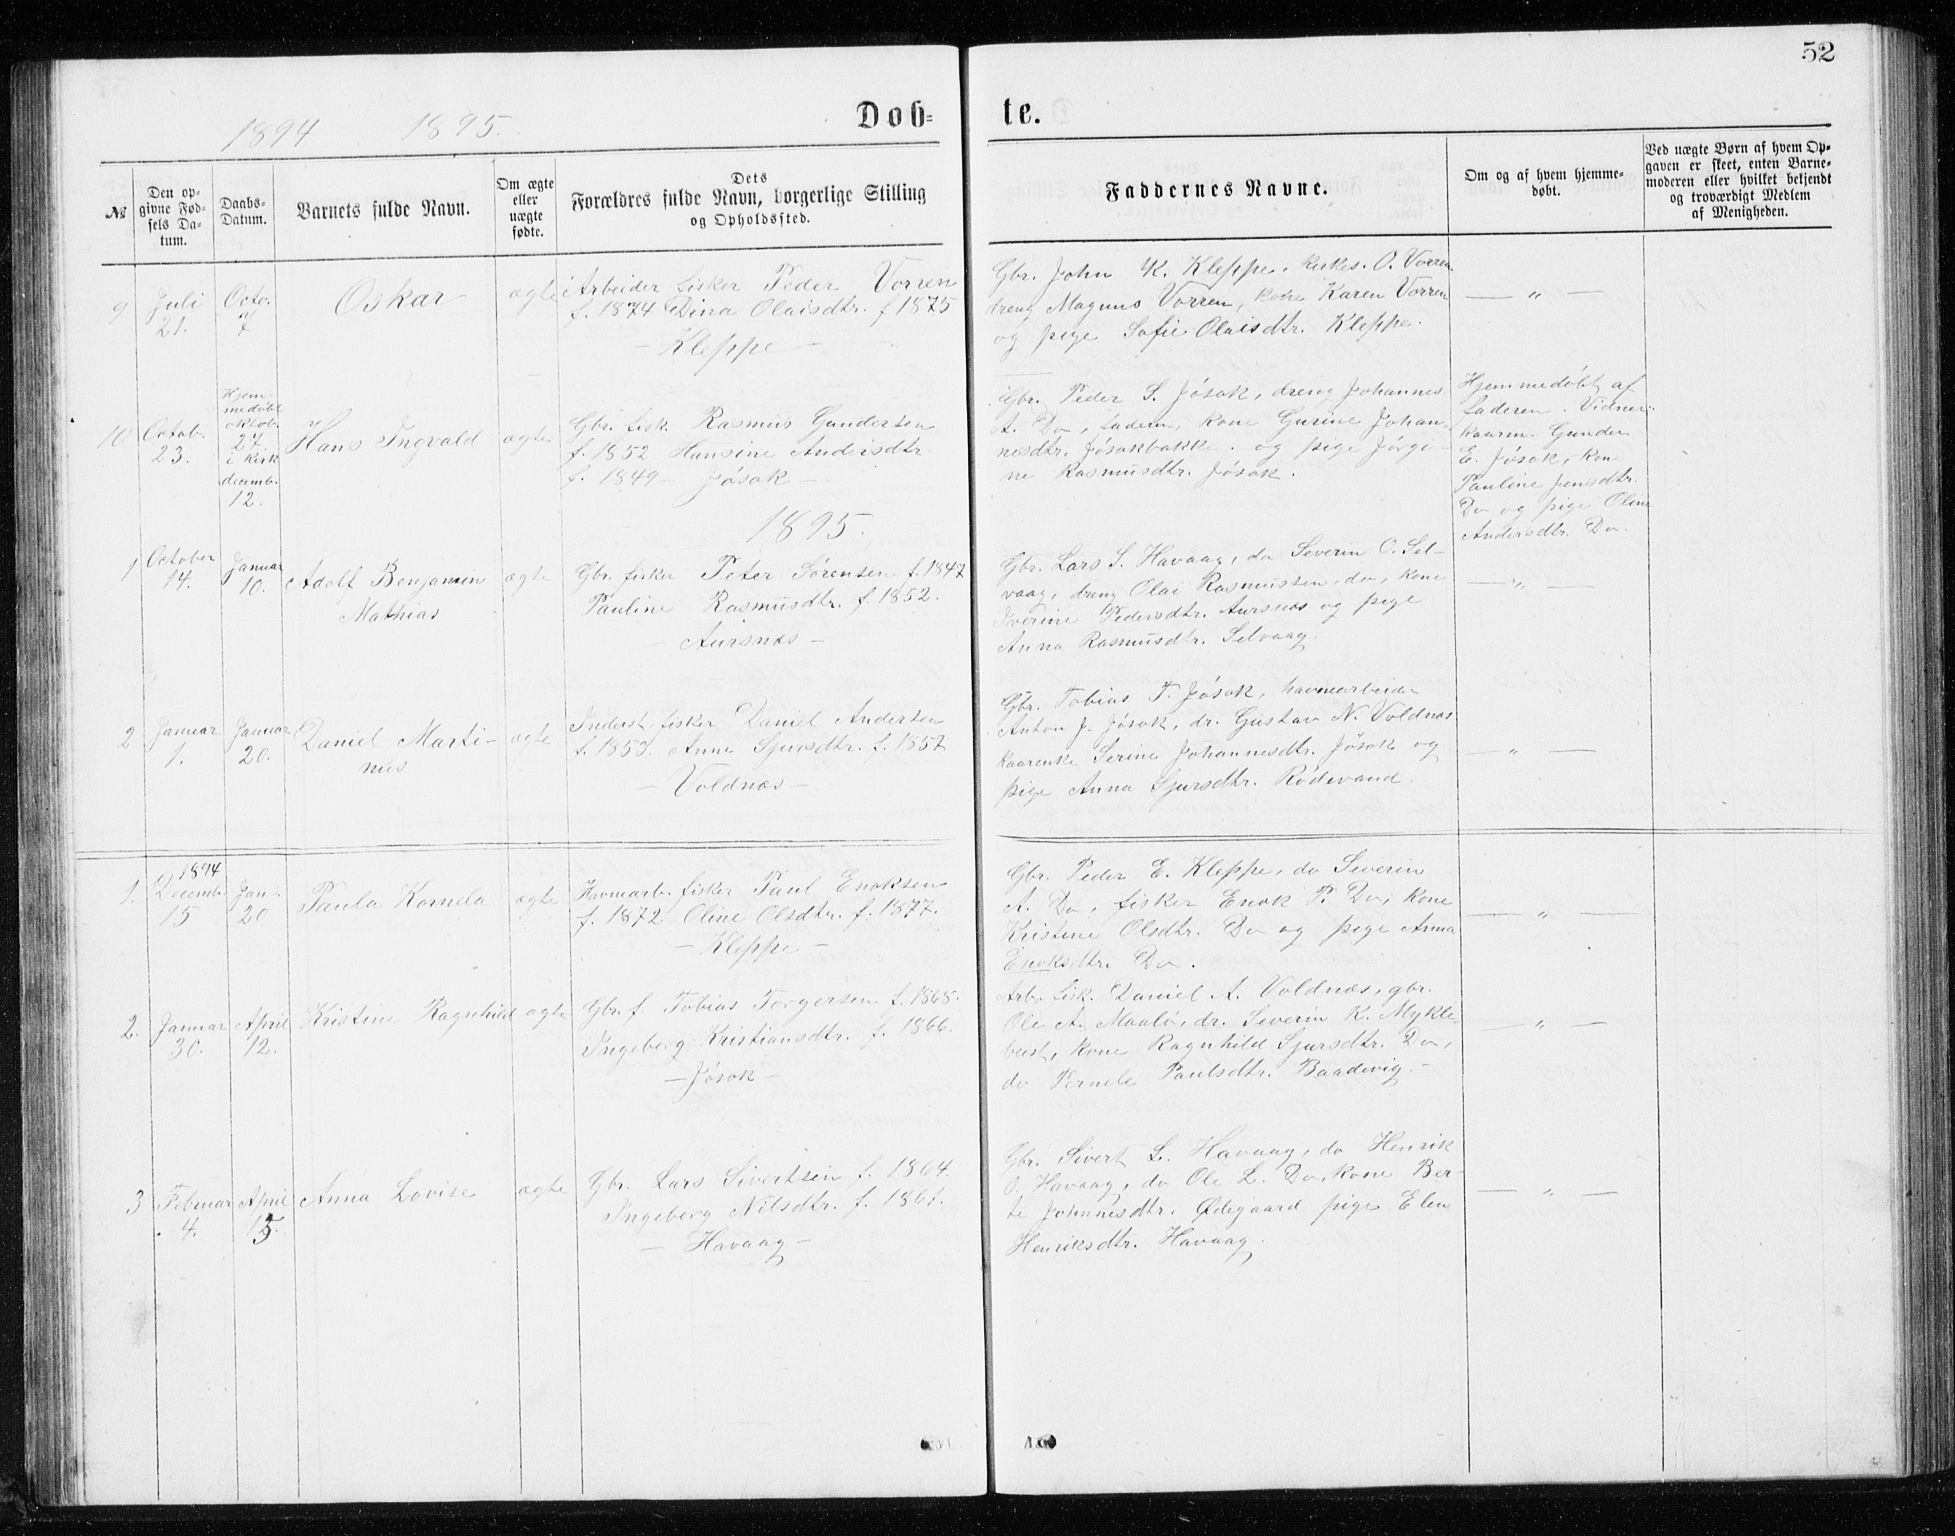 52
Døb=
te.
1894 1895.
№
Den op-
givne Fød-
sels Da-
tum.
Daabs-
Datum.
Barnets fulde Navn.
Om ægte
eller
uægte
fødte.
Dets
Forældres fulde Navn, borgerlige Stilling
og Opholdssted.
Faddernes Navne.
Om og af hvem hjemme-
døbt.
Ved uægte Børn af hvem Op-
gaven er skeet, enten Barne-
moderen eller hvilket bekjendt
og troværdigt Medlem
af Menigheden.
9
Juli
21.
Octo.
7
Oskar
ægte
Arbeider fisker Peder Vorren
f. 1874 Dina Olaisdtr. f 1875
- Kleppe -
Gbr. John K. Kleppe, O. Vorren
dreng Magnus Vorren, kone Karen Vorren
og pige Sofie Olaisdtr. Kleppe.
— " —
10
Octob.
23.
Hjem-
medøbt
oktob.
27
i kirk
decemb.
12.
Hans Ingvald
ægte
Gbr. fisk. Rasmus Gundersen
f. 1852 Hansine Andersdtr.
f. 1849 - Jøsok -
Gbr. Peder S. Jøsok, dreng Johannes
A. Do, faderen, kone Gurine Johan-
nesdtr. Jøsokbakke. og pige Jørgi-
ne Rasmusdtr. Jøsok.
Hjemmedøbt af
faderen. Vidner:
kaarm. Gunder
E. Jøsok, kone
Pauline Jensdtr.
Do og pige Oline
Andersdtr. Do.
1895.
1
October
14.
Januar
10.
Adolf Benjamin
Mathias
ægte
Gbr. fisker Peter Sørensen f. 1847
Pauline Rasmusdtr. f. 1852.
- Aursnæs -
Gbr. Lars S. Havaag, do Severin O. Sel-
vaag, dreng Olai Rasmussen, do, kone
Iverine Pedersdtr. Aursnæs og pige
Anna Rasmusdtr. Selvaag.
— " —
2
Januar
1.
Januar
20.
Daniel Marti-
nus
ægte
Inderst fisker Daniel Andersen
f. 1853. Anne Sjursdtr. f. 1857
- Voldnæs -
Gbr. Tobias T. Jøsok, havnearbeider
Anton J. Jøsok, dr. Gustav N. Voldnæs
kaarenke Serine Johannesdtr. Jøsok og
pige Anna Sjursdtr. Rødevand.
— " —
1.
1894
Decemb.
15
Jan.
20
Paula Kornela
ægte
Havnearb. fisker Paul Enoksen
f. 1872 Oline Olsdtr. f. 1877.
- Kleppe -
Gbr. Peder E. Kleppe, do Severin
A. Do, fisker Enok P. Do, kone
Kristine Olsdtr. Do og pige Anna
Enoksdtr. Do.
— " —
2.
Januar
30.
April
12.
Kristine Ragnhild
ægte
Gbr. f. Tobias Torgersen f. 1868.
Ingeborg Kristiansdtr. f. 1866.
- Jøsok -
Arb. fisk. Daniel A. Voldnæs, gbr.
Ole A. Maalø, dr. Severin K. Mykle-
bust, kone Ragnhild Sjursdtr. Do,
do Pernele Paulsdtr. Baadsvig. -
— " —
3
Februar
4.
April
15.
Anna Lovise
ægte
Gbr. Lars Sivertsen f. 1864.
Ingeborg Nilsdtr. f. 1861.
- Havaag -
Gbr. Sivert L. Havaag, do Henrik
O. Havaag, do Ole L. Do, kone Ber-
te Johannesdtr. Ødegaard pige Elen
Henriksdtr. Havaag.
— " —